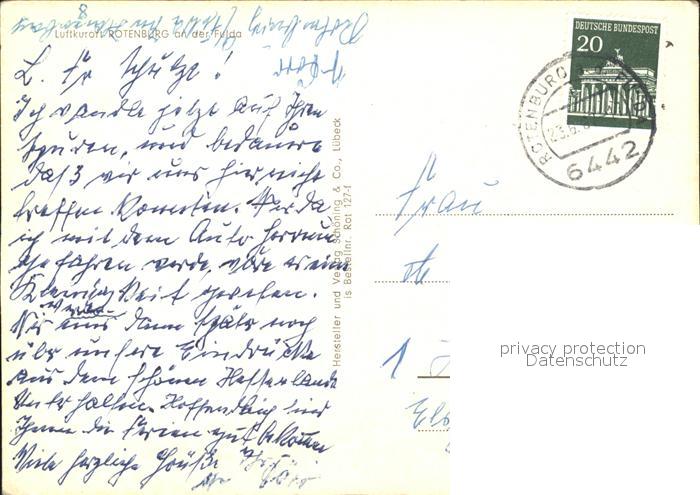 Rotenburg
Luftkurort ROTENBURG an der Fulda
L. Fr Schulze!
Ich wandle jetzt auf Ihren
Spuren, und bedaure
daß wir uns hier nicht
treffen konnten. Wo da
ich mit dem Auto herum
gefahren werde, wäre es eine
Kleinigkeit gewesen.
Wir uns dann später noch
über unsere Eindrücke
aus dem schönen Hessenlande
unterhalten. Hoffentlich sind
Ihnen die Ferien gut bekommen
Viele herzliche Grüße Ihre
Hersteller und Verlag Schöning & Co., Lübeck
is Bestellnr. Rot 127-1
DEUTSCHE BUNDESPOST
20
ROTENBURG
23.6.
6442
Frau
1
privacy protection
Datenschutz